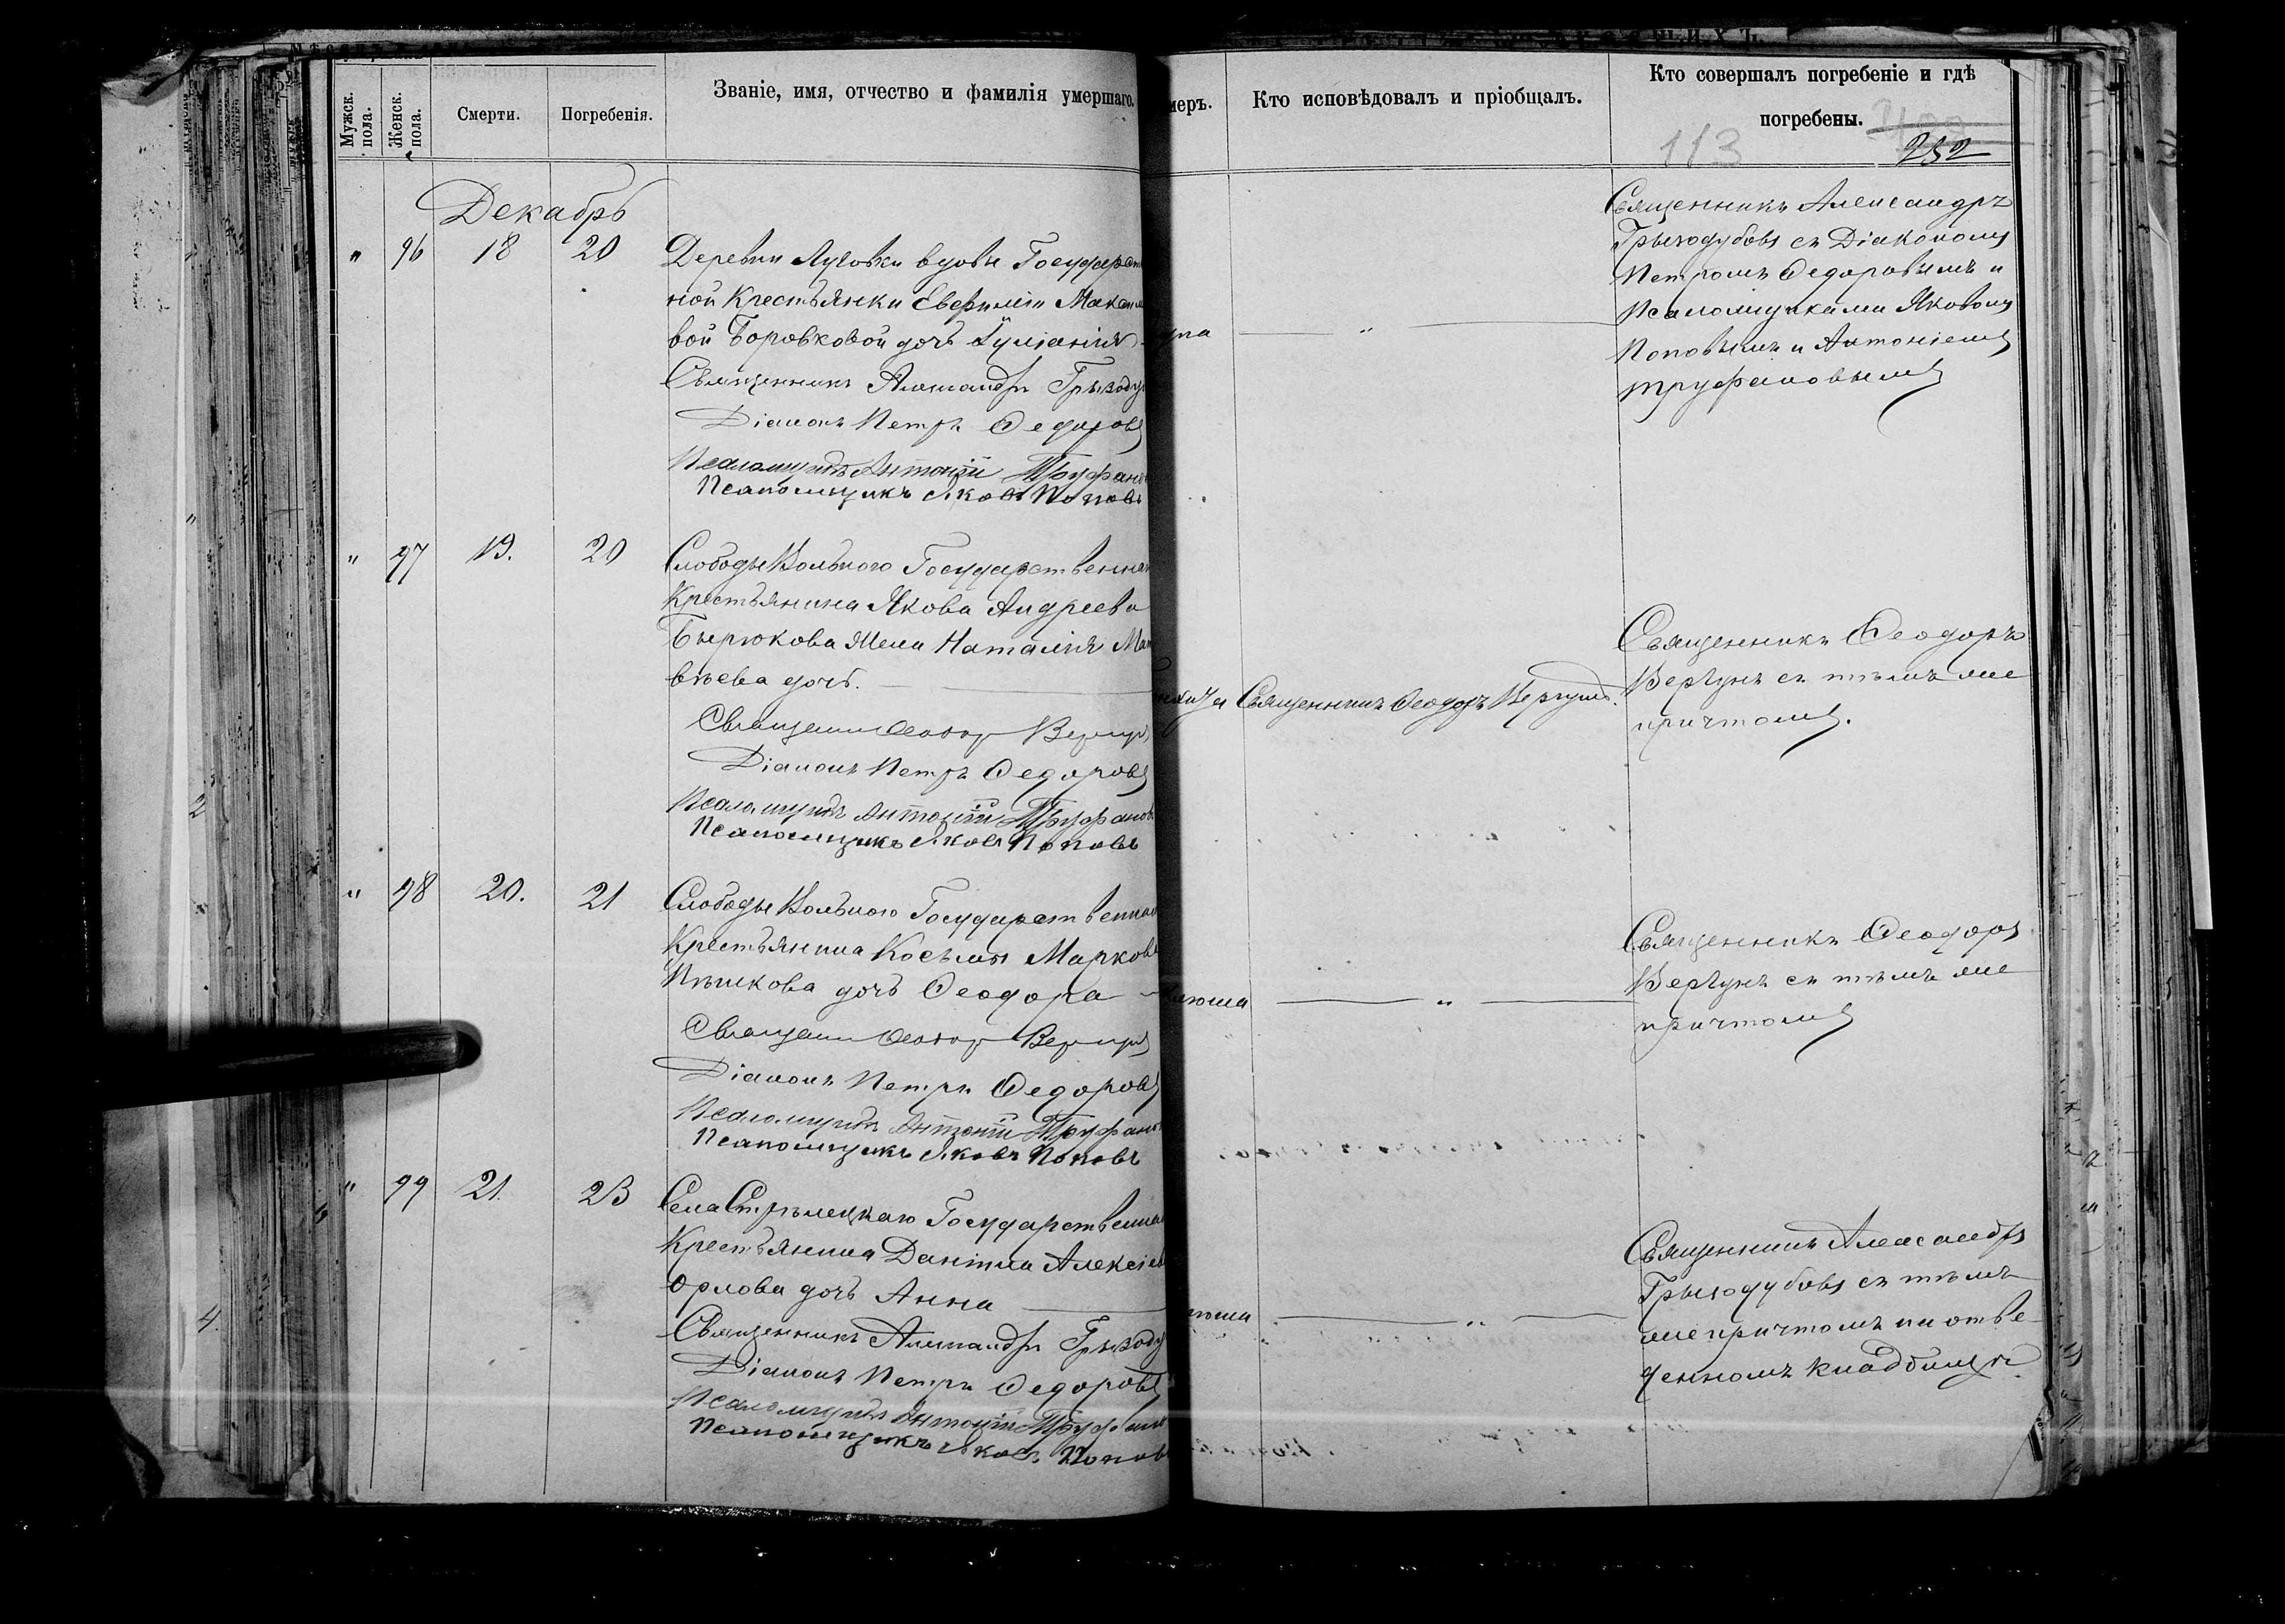 Мужск. пола.
Женск. пола.
Смерти.
Погребенія.
Званіе, имя, отчество и фамилія умершаго.
меръ.
Кто исповѣдовалъ и пріобщалъ.
Кто совершалъ погребеніе и гдѣ
погребены.
113
252
Декабрь
" 96 18 20
Деревни Луговки вдовы Государст
ной Крестьянки Евфиміи Макси
вой Боровковой дочь Іуліанія
Священникъ Александръ Грызоду
Діаконъ Петръ Ѳедоровъ
Псаломщикъ Антоній Труфано
Псаломщикъ Яковъ Поповъ
упа
"
Священникъ Александръ
Грызодубовъ съ Діакономъ
Петромъ Ѳедоровымъ и
Псаломщиками Яковомъ
Поповымъ и Антоніемъ
Труфановымъ
" 97 19. 20
Слободы Вольного Государственна
Крестьянина Якова Андреева
Бирюкова жена Наталія Мат
вѣева дочь.
Священни Ѳеодор Вергун
Діаконъ Петръ Ѳедоровъ
Псаломщикъ Антоній Труфановъ
Псаломщикъ Яковъ Поповъ
Священникъ Ѳеодоръ Вергунъ.
Священникъ Ѳеодоръ
Вергунъ съ тѣмъ же
причтомъ.
" 98 20. 21
Слободы Вольного Государственна
Крестьянина Косьмы Маркова
Пѣшкова дочь Ѳеодора
Священни Ѳеодор Вергун
Діаконъ Петръ Ѳедоровъ
Псаломщикъ Антоній Труфано
Псаломщикъ Яковъ Поповъ
"
Священникъ Ѳеодоръ
Вергунъ съ тѣмъ же
причтомъ
" 99 21. 23
Села Стрѣлецкаго Государственна
Крестьянина Даніила Алексіев
Орлова дочь Анна
Священникъ Александръ Грызоду
Діаконъ Петръ Ѳедоровъ
Псаломщикъ Антоній Труфан
Псаломщикъ Яковъ Попов
"
Священникъ Александръ
Грызодубовъ съ тѣмъ
же причтомъ на отве
денномъ кладбищѣ.